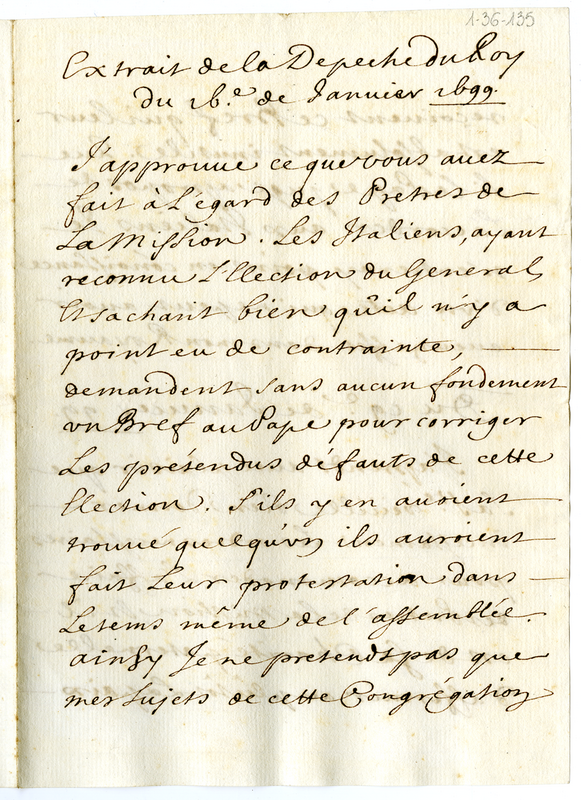 1-36-135
Extrait de la Depeche du Roy
du 16.e de Janvier 1699.
J'approuue ce que vous auez
fait à L'égard des Pretres de
La Mission. Les Italiens, ayant
reconnu L'Election du General,
Et sachant bien qu'il n'y a
point eu de contrainte,
demandent sans aucun fondement
vn Bref au Pape pour corriger
Les prétendus défauts de cette
Election. S'ils y en auoient
trouué quelqu'vn ils auroient
fait Leur protestation dans
Le tems même de l'assemblée.
ainsy Je ne pretends pas que
mes sujets de cette Congrégation